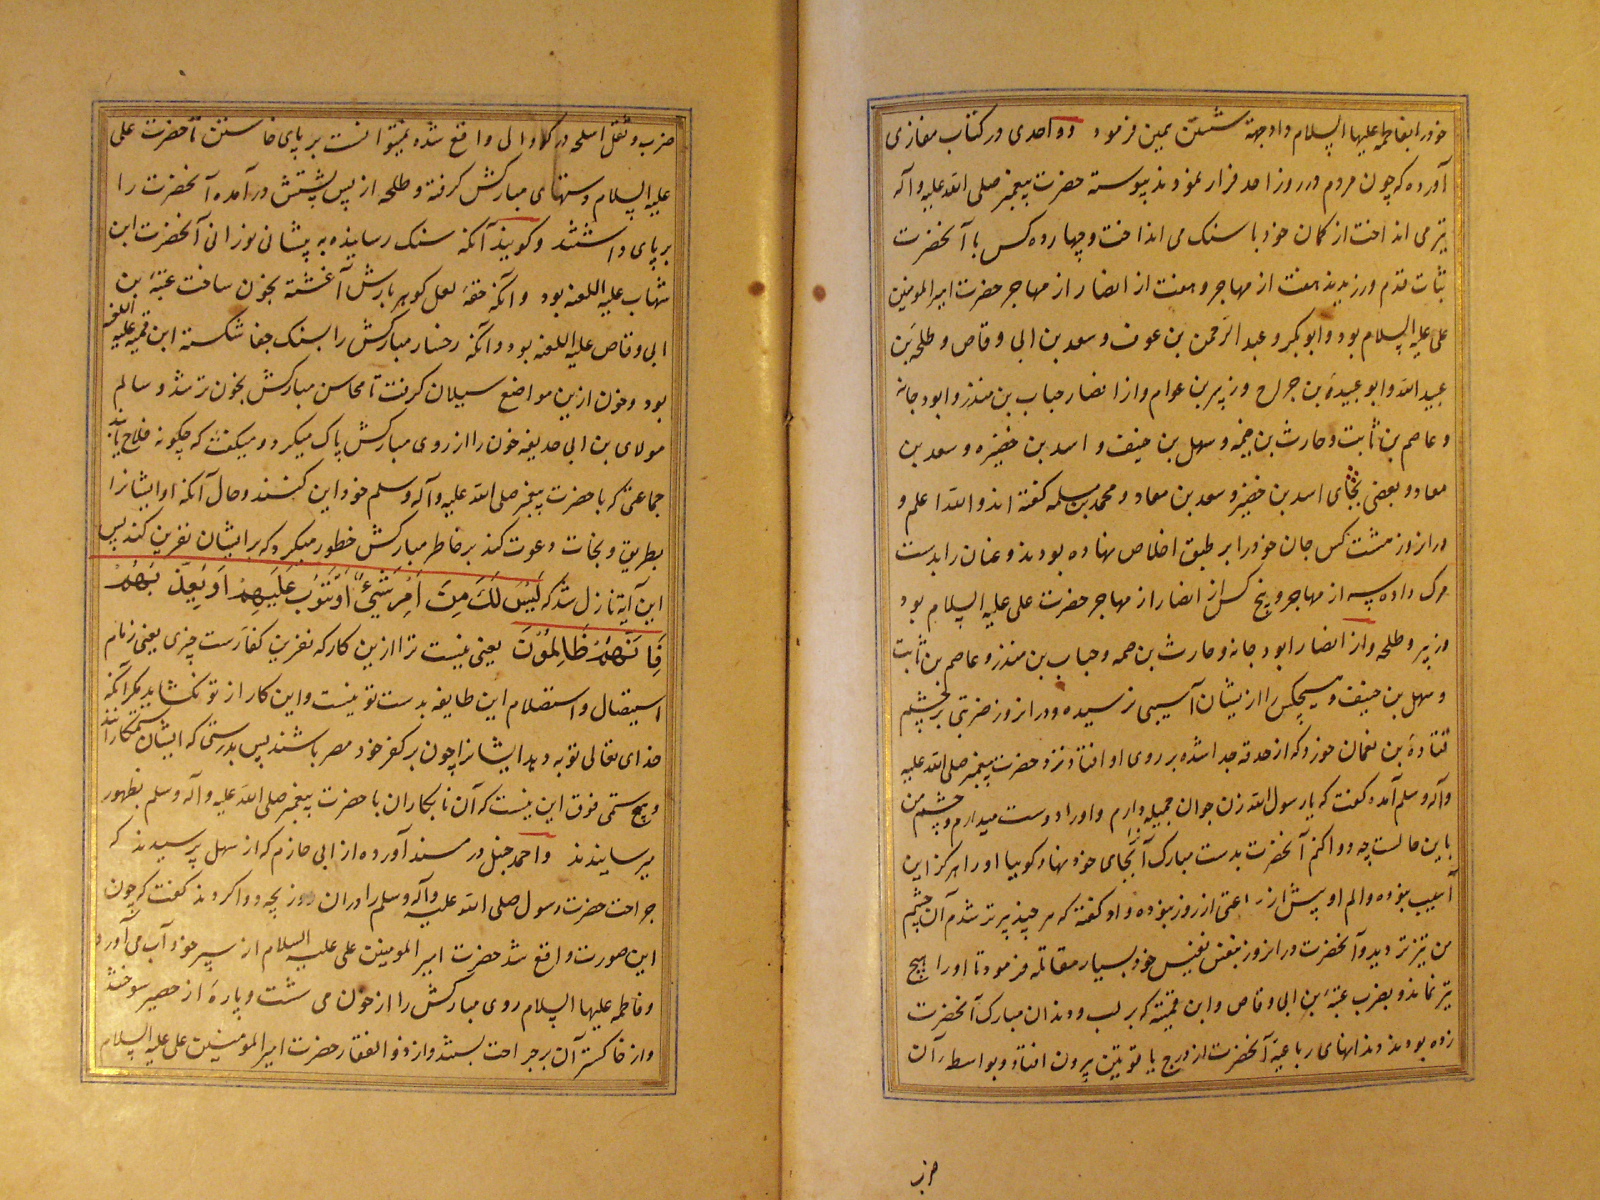 خود را بفاطمه علیها السلام داد جهة شستن یمین فرمود و واحدی در کتاب مغازی
آورده که چون مردم در روز احد فرار نمودند پیوسته حضرت پیغمبر صلی الله علیه وآله
تیر می انداخت از کمان خود با سنک می انداخت و چهارده کس با آنحضرت
ثبات قدم ورزیدند هفت از مهاجر و هفت از انصار از مهاجر حضرت امیر المومنین
علی علیه السلام بود و ابو بکر و عبد الرحمن بن عوف و سعد بن ابی وقاص و طلحه بن
عبید الله و ابو عبیدة بن جراح و زبیر بن عوام و از انصار حباب بن منذر و ابو دجانه
و عاصم بن ثابت و حارث بن صمه و سهل بن حنیف و اسد بن حضیر و سعد بن
معاد و بعضی بجای اسد بن حضیر و سعد بن معاد و محمد بن مسلمه کفته اند والله اعلم و
در انروز هشت کس جان خود را بر طبق اخلاص نهاده بودند و عنان را بدست
مرک داده سه از مهاجر و پنج کس از انصار از مهاجر حضرت علی علیه السلام بود
و زبیر و طلحه و از انصار ابو دجانه و حارث بن صمه و حباب بن منذر و عاصم بن ثابت
و سهل بن حنیف و هیچکس را از یشان آسیبی نرسیده و در انروز ضربتی بر چشم
قتادة بن نعمان خورد که از حدقه جدا شده بر روی او افتاد نزد حضرت پیغمبر صلی الله علیه
وآله وسلم آمده کفت که یا رسول الله زن جوان جمیله دارم و او را دوست میدارم و چشم من
باین حالست چه دوا کنم آنحضرت بدست مبارک آنرا بجای خود نهاد کوییا او را هرکز این
آسیب نبوده والم او پیش از ساعتی از روز نبوده و او کفته که هر چند پیر تر شدم آن چشم
من تیز تر دید و آنحضرت در انروز بنفس نفیس خود بسیار مقاتله فرمود تا او را هیچ
تیر نماند و بضرب عتبة بن ابی وقاص و ابن قمیئه که بر لب و دندان مبارک آنحضرت
زده بودند دندانهای رباعیه آنحضرت از درج یاقوتین بیرون افتاد و بواسطه آن
ضرب
ضرب و ثقل اسلحه در کوادالی واقع شده نمیتوانست بر پای خاستن تا حضرت علی
علیه السلام دستهای مبارکش کرفته و طلحه از پس پشتش درآمده آنحضرت را
بر پای داشتند و کویند آنکه سنک رسانیده به پیشانی نورانی آنحضرت ابن
شهاب علیه اللعنه بود و آنکه حقهٔ لعل کوهر بارش آغشته بخون ساخت عتبة بن
ابی وقاص علیه اللعنه بود و آنکه رخسار مبارکش را بسنک جفا شکسته ابن قمیه علیه اللعنه
بود و خون ازین مواضع سیلان کرفت تا محاسن مبارکش بخون تر شد و سالم
مولای بن ابی حدیفه خون را از روی مبارکش پاک میکرد و میکفت که چکونه فلاح یابند
جماعتی که با حضرت پیغمبر صلی الله علیه وآله وسلم خود این کنند و حال آنکه او ایشانرا
بطریق نجات دعوت کند بر خاطر مبارکش خطور میکرد که بر ایشان نفرین کند پس
این آیة نازل شد که لَیْسَ لَكَ مِنَ اَمْرِ شَیْءٌ اَوْ یَتُوبَ عَلَیْهِمْ اَوْ یُعَذِّبَهُمْ
فَاِنَّهُمْ ظَالِمُوْنَ یعنی نیست ترا ازین کار که نفرین کفارست چیزی یعنی زمام
استیصال و استصلام این طایفه بدست تو نیست و این کار از تو نکشاید مکر آنکه
خدای تعالی توبه دهد ایشانرا چون بر کفر خود مصر باشند پس بدرستی که ایشان ستمکارانند
و هیچ ستمی فوق این نیست که آن نابکاران با حضرت پیغمبر صلی الله علیه وآله وسلم بظهور
میرسانیدند واحمد حنبل در سند آورده از ابی حازم که از سهل پرسیدند که
جراحت حضرت رسول صلی الله علیه وآله وسلم را در ان روز بچه دوا کردند کفت که چون
این صورت واقع شد حضرت امیر المومنین علی علیه السلام از سپر خود آب می آورد
و فاطمه علیها السلام روی مبارکش را از خون می شست و پارهٔ از حصیر سوخته
و از خاکستر آن بر جراحت بستند و از ذو الفقار حضرت امیر المومنین علی علیه السلام